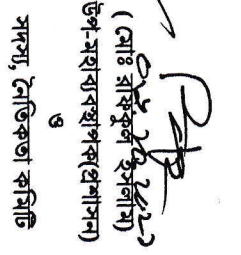 (মোঃ রফিকুল ইসলাম)
উপ-মহাব্যবস্থাপক(প্রশাসন)
ও
সদস্য, নৈতিকতা কমিটি